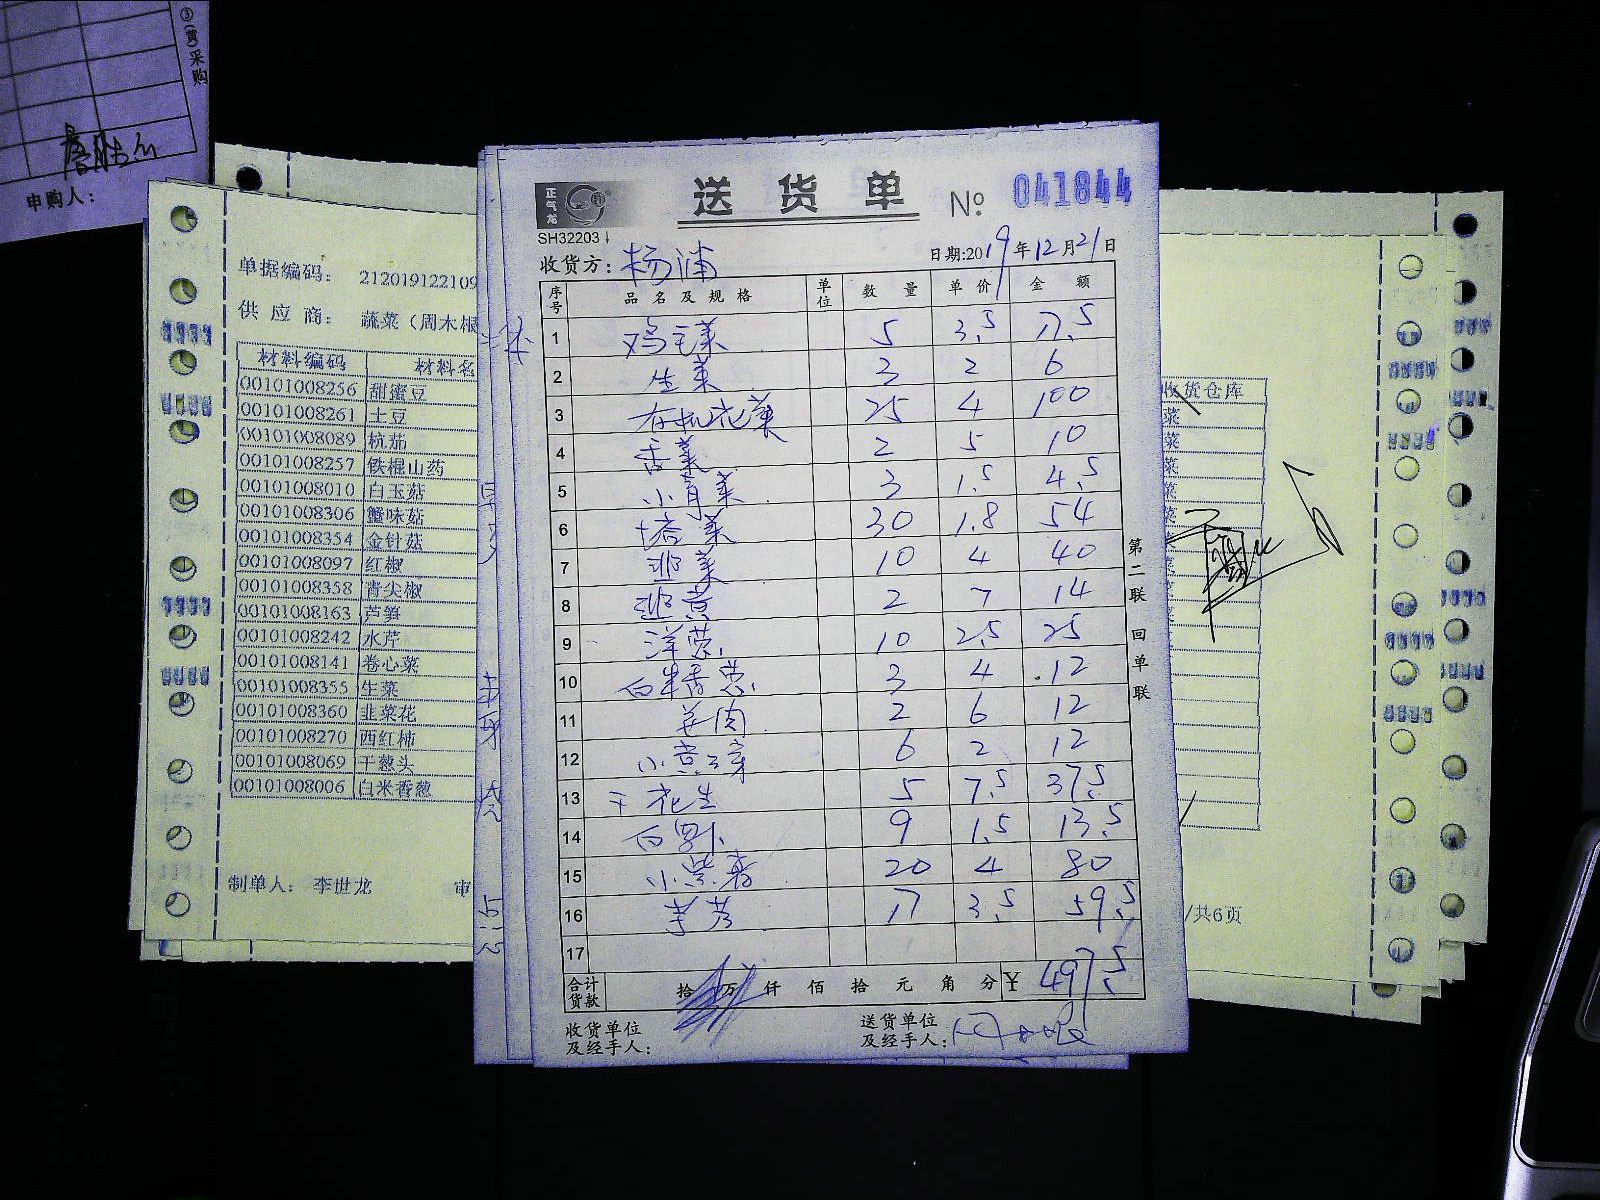 ③(黄)采购
申购人：
单据编码： 212019122109
供 应 商： 蔬菜（周木根
材料编码 材料名
00101008256 甜蜜豆
00101008261 土豆
00101008089 杭茄
00101008257 铁棍山药
00101008010 白玉菇
00101008306 蟹味菇
00101008354 金针菇
00101008097 红椒
00101008358 青尖椒
00101008163 芦笋
00101008242 水芹
00101008141 卷心菜
00101008355 生菜
00101008360 韭菜花
00101008270 西红柿
00101008069 干葱头
00101008006 白米香葱
制单人： 李世龙 审
正气龙
SH32203
送货单 № 041844
收货方：杨浦 日期:2019年12月21日
序号 品名及规格 单位 数量 单价 金额
1 鸡毛菜 5 3.5 17.5
2 生菜 3 2 6
3 有机花菜 25 4 100
4 香菜 2 5 10
5 小青菜 3 1.5 4.5
6 塔菜 30 1.8 54
7 韭菜 10 4 40
8 韭黄 2 7 14
9 洋葱 10 2.5 25
10 白米香葱 3 4 12
11 羊肉 2 6 12
12 小黄豆芽 6 2 12
13 干花生 5 7.5 37.5
14 白萝卜 9 1.5 13.5
15 小紫薯 20 4 80
16 芋艿 17 3.5 59.5
17
合计货款 拾 万 仟 佰 拾 元 角 分 ¥ 497.5
收货单位及经手人： 送货单位及经手人：周木根
第二联 回单联
收货仓库
菜
菜
菜
菜
菜
/共6页